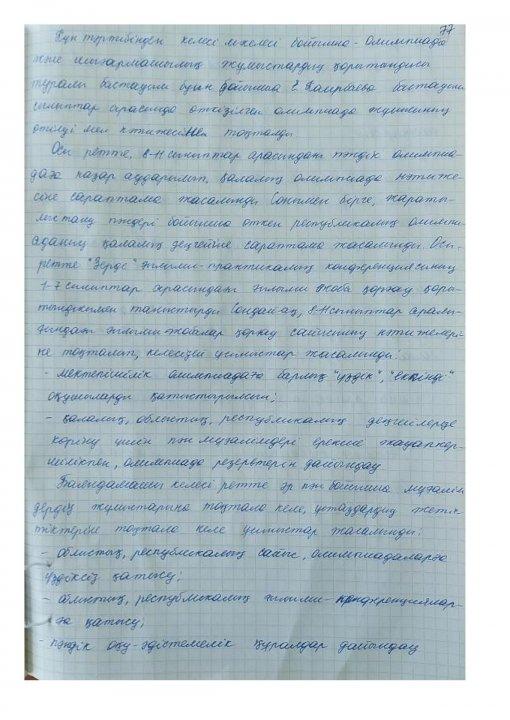 77
Күн тәртібінен келесі мәселесі бойынша - олимпиада
және шығармашылық жұмыстардың қорытындысы
туралы бастауыш буын бойынша бастауыш
сыныптар арасында өткізілген олимпиада жүйесінің
өтілуі мен нәтижесімен тоқталды.
Осы ретте, 8-11 сыныптар арасындағы пәндік олимпиа-
даға назар аударылып, қалалық олимпиада нәтиже-
сіне сараптама жасалынды. Сонымен бірге, жараты-
лыстану пәндері бойынша өткен республикалық олимпи-
аданың қалалық деңгейіне сараптама жасалынды. Осы
ретте "Зерде" ғылыми-практикалық конференциясының
1-7 сыныптар арасындағы ғылыми жоба қорғау қоры-
тындысымен таныстырды. Сондай-ақ, 8-11 сыныптар арасы-
ндағы ғылыми жобалар қорғау сайысының нәтижелері-
не тоқталып, келесідей ұсыныстар жасалынды:
- мектепішілік олимпиадаға барлық "үздік", "екпінді"
оқушыларды қатыстырылып;
- қалалық, облыстық, республикалық деңгейлерде
көріну үшін пән мұғалімдері ерекше жауапкер-
шілікпен, олимпиада резервтерін дайындау
Баяндамашы келесі ретте әр пән бойынша мұғалім-
дердің жұмыстарына тоқтала келе, ұстаздардың жетіс-
тіктеріне тоқтала келе ұсыныстар жасалынды:
- облыстық, республикалық сайыс, олимпиадаларға
үздіксіз қатысу;
- облыстық, республикалық ғылыми-конференциялар-
ға қатысу;
- пәндік оқу-әдістемелік құралдар дайындау